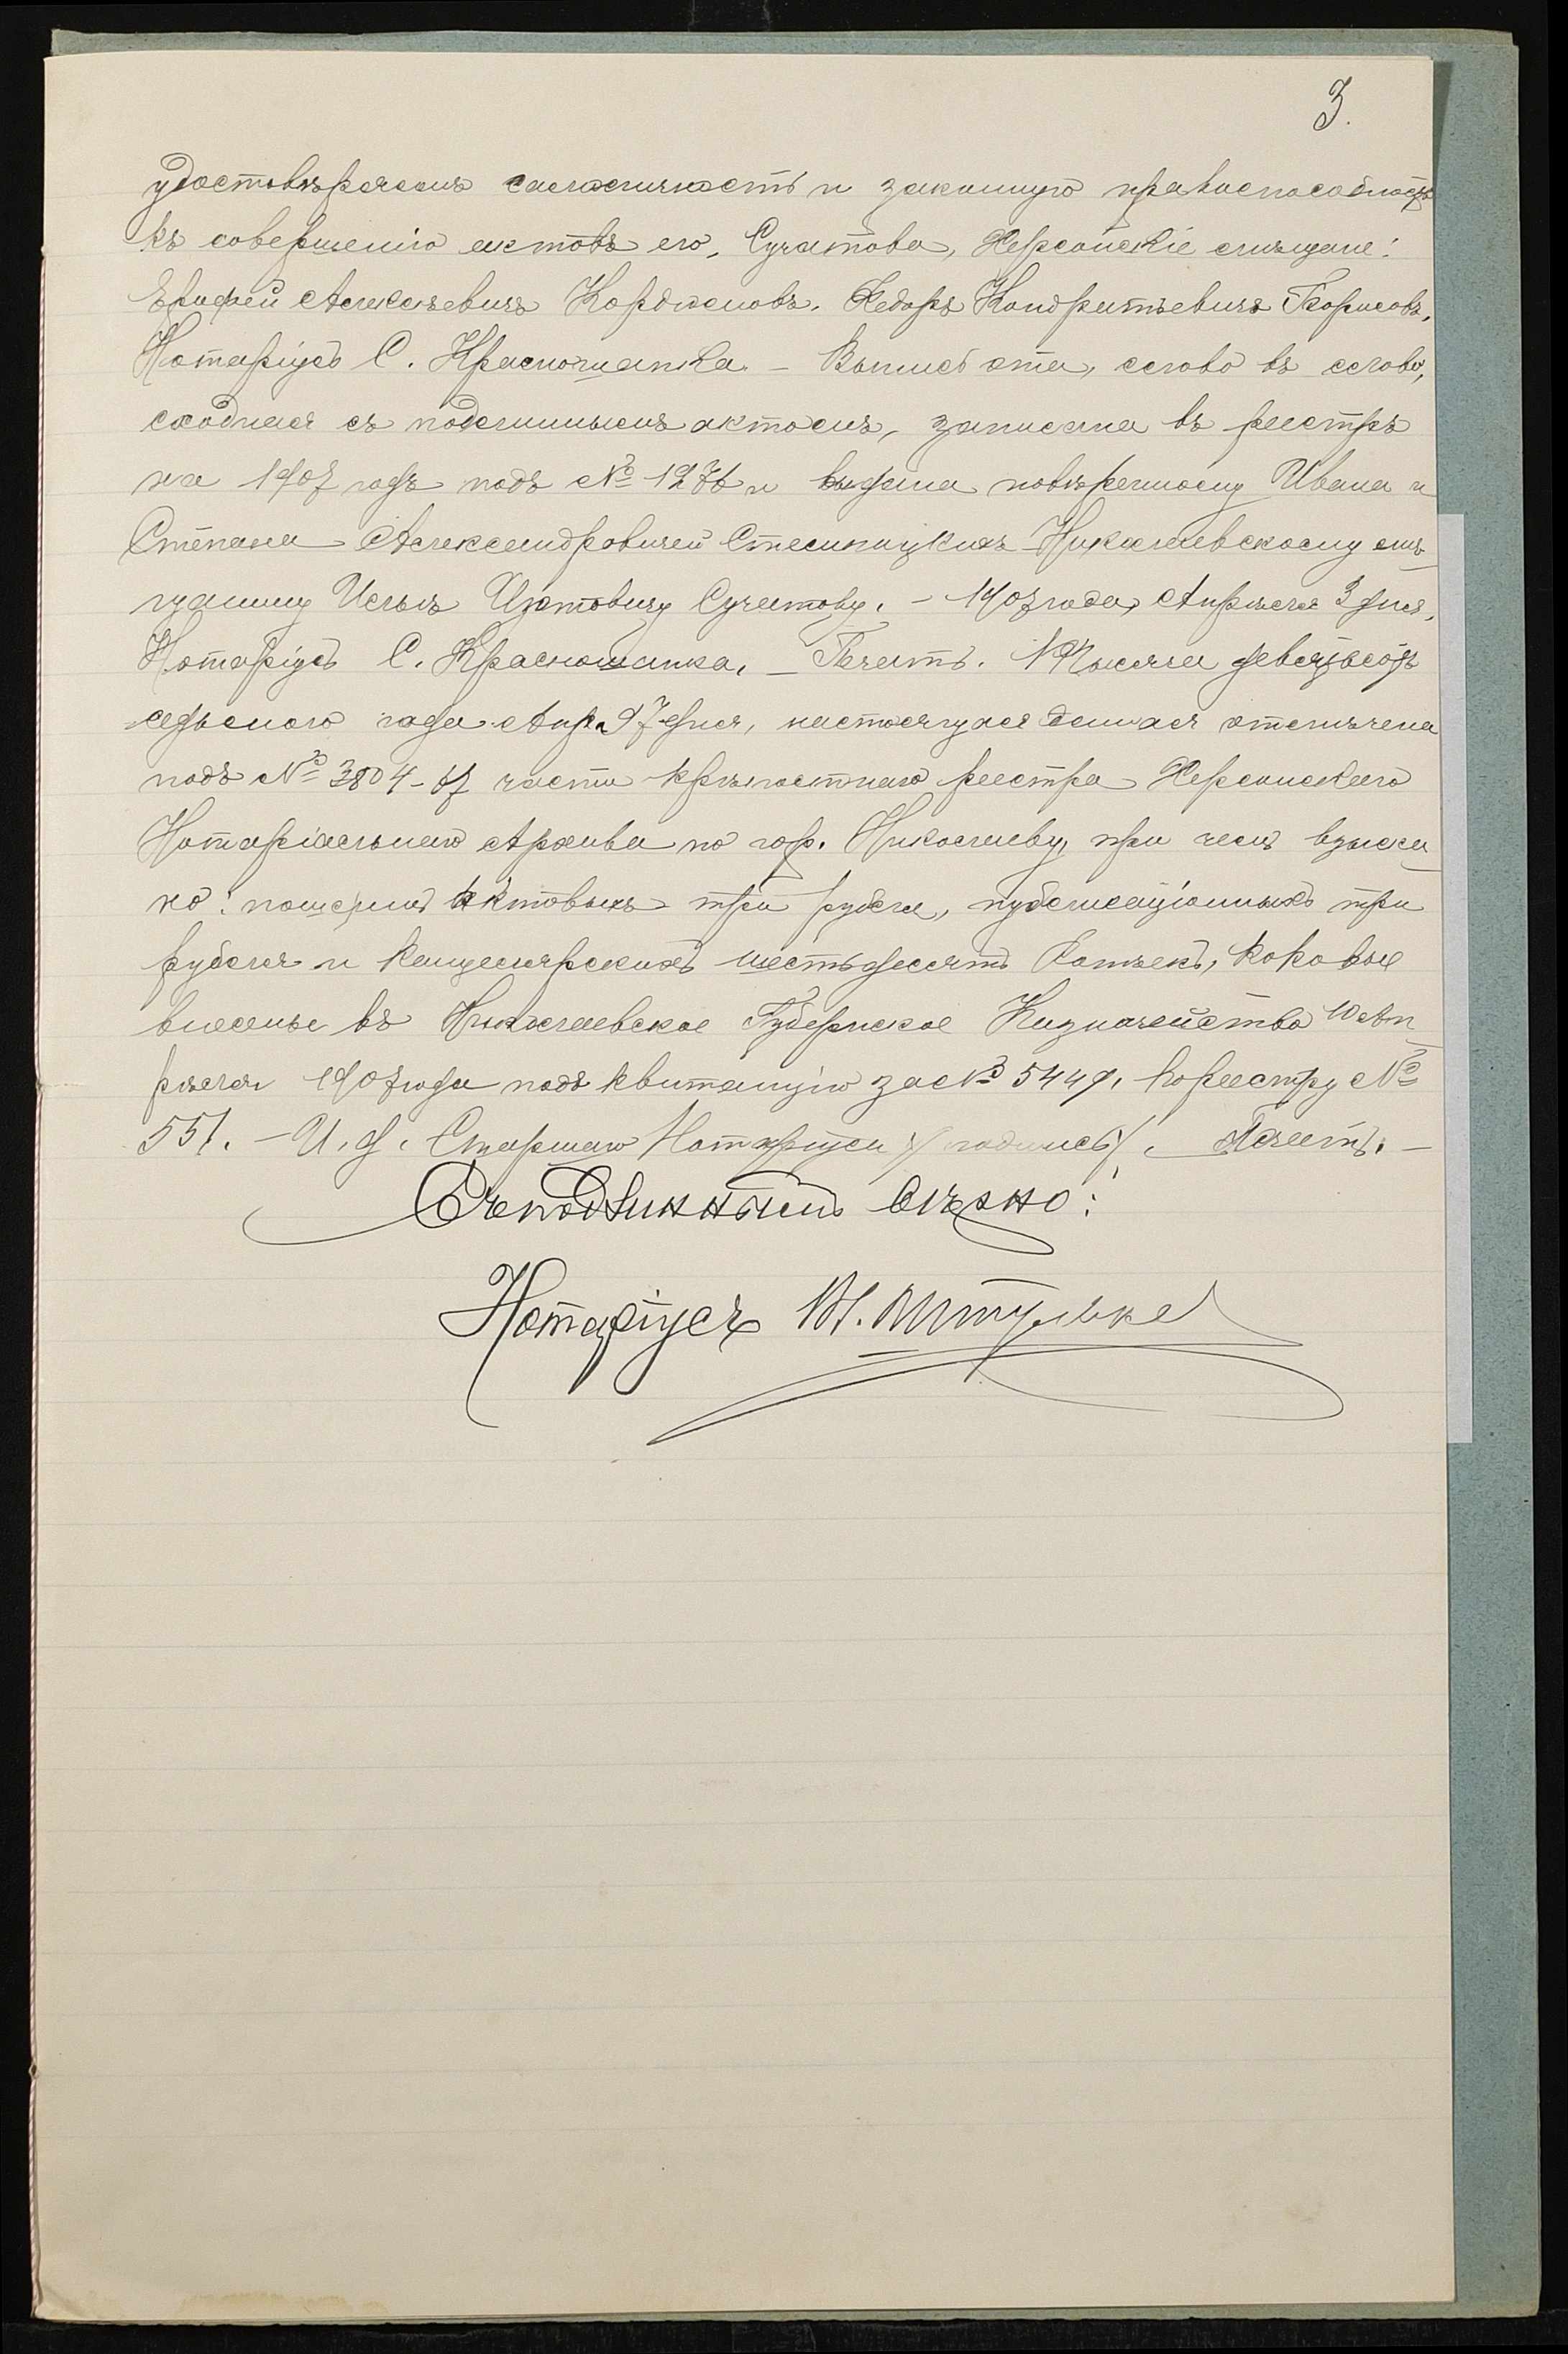 3.
удостовѣряемъ самоличность и законную правоспособность
къ совершенію актовъ его, Сучатова, Херсонскіе мѣщане:
Ерофей Алексѣевичъ Кордюковъ. Федоръ Кондратьевичъ Борисовъ.
Нотаріусъ С. Красношапка – Выпись эта, слово въ слово,
сходная съ подлиннымъ актомъ, записана въ реестръ
на 1907 годъ подъ № 1276 и выдана повѣренному Ивана и
Степана Александровичей Стемпицкихъ Николаевскому мѣ
щанину Исаю Сучатову. – 1907 года, Апрѣля 3 дня.
Нотаріусъ С. Красношапка. – Печать. Тысяча девятьсотъ
седьмого года Апр. 97 дня, настоящая данная отмѣчена
подъ № 3804-07 части крѣпостнаго реестра Херсонскаго
Нотаріальнаго Архива по гор. Николаеву, при чемъ взыска
но: пошлинъ актовыхъ три рубля, публикаціонныхъ три
рубля и канцелярскихъ шестьдесятъ копѣекъ, каковые
внесены въ Николаевское Губернское Казначейство 10 Ап
рѣля 1907 года подъ квитанцію за № 5449, по реестру №
551. – И. д. Старшаго Нотаріуса /подпись/. Печать. –
Съ подлиннымъ вѣрно:
Нотаріусъ М. Штулькер